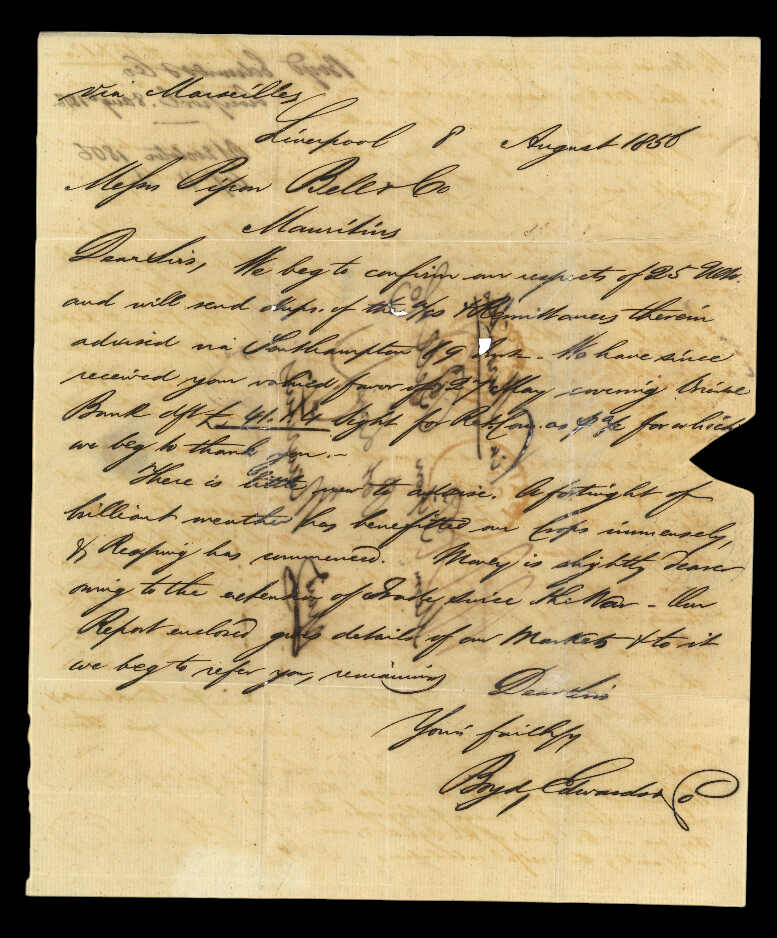 via Marseilles
Liverpool 8 August 1856
Messrs Pipon Bell & Co
Mauritius
Dear Sirs, We beg to confirm our respects of 25 Ulto.
and will send dups. of the a/cs & Remittances therein
advised via Southampton 9 Inst. We have since
received your valued favor of 27 May covering
Bank dft £ Sight for for which
we beg to thank you.
There is little new to advise. A fortnight of
brilliant weather has benefitted our Crops immensely,
& Reaping has commenced. Money is slightly dearer
owing to the extension of Trade since the War - Our
Report enclosed gives details of our Markets & to it
we beg to refer you, remaining
Dear Sirs
Yours faithfy
Boyd, Edwards & Co